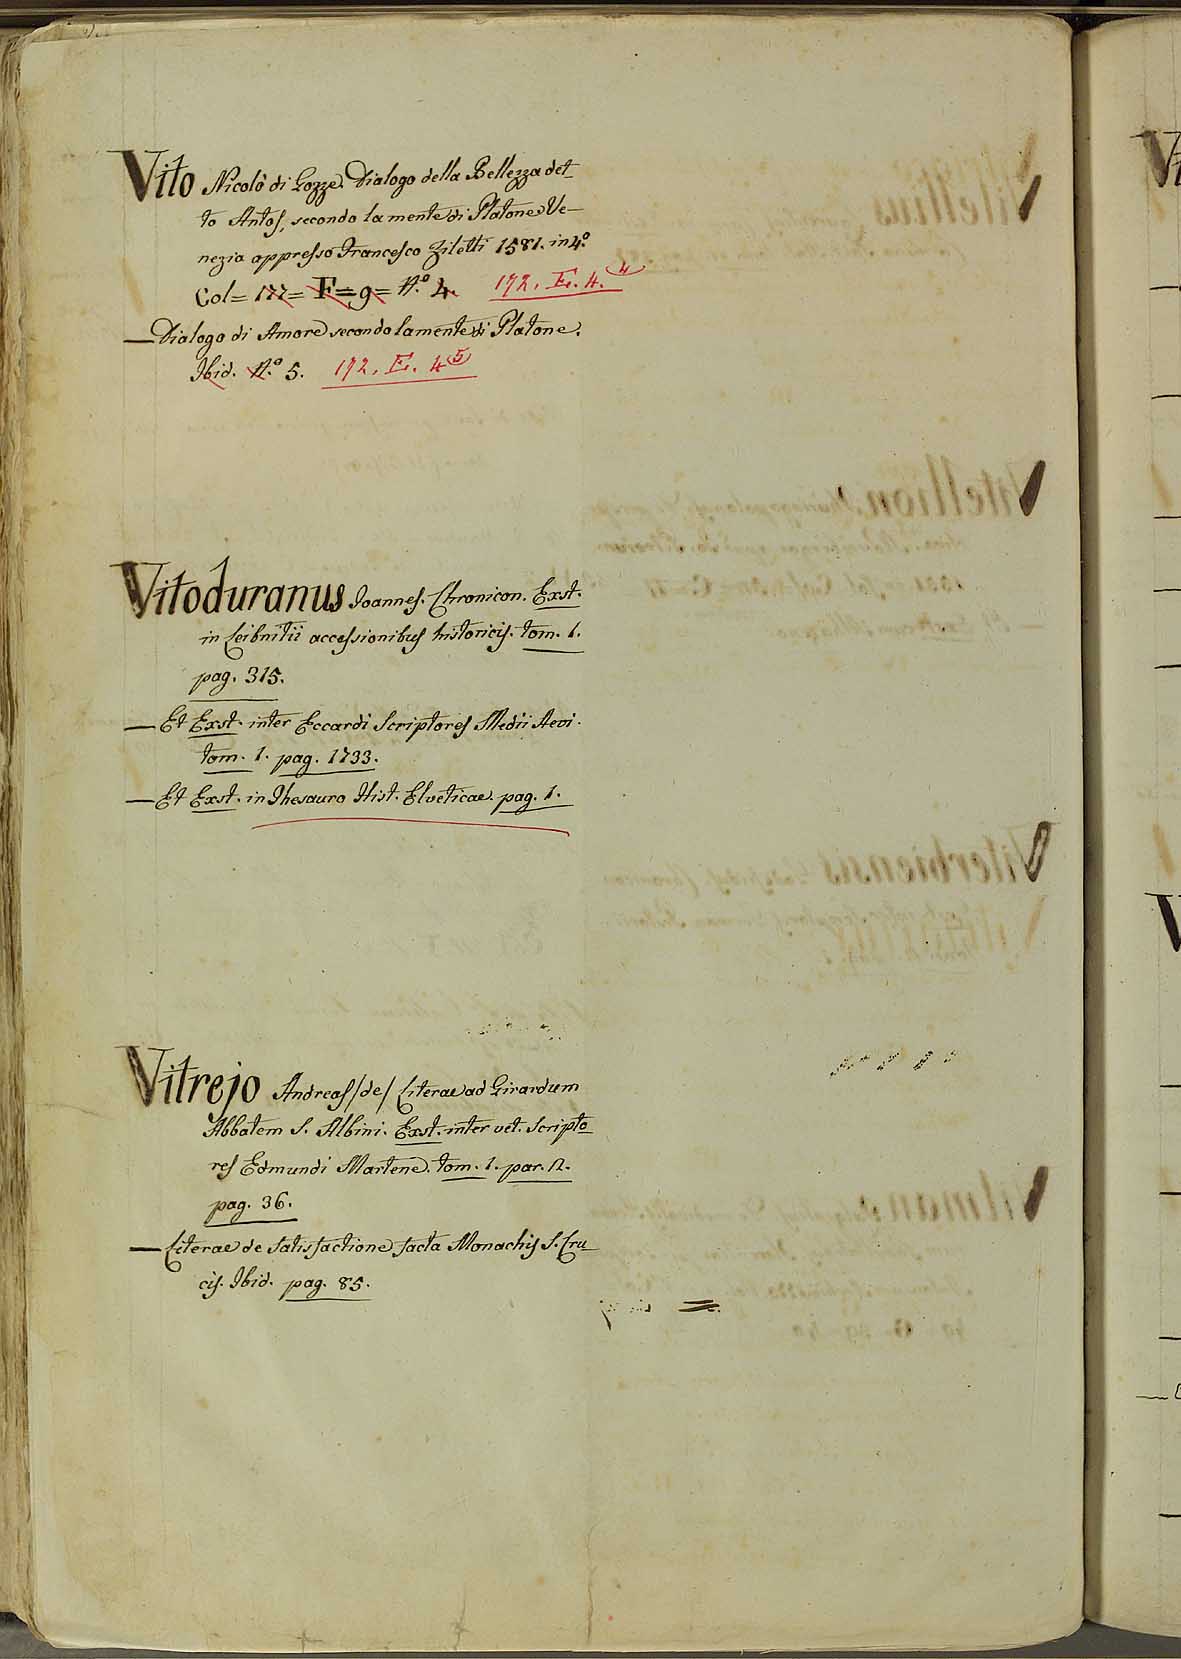 Vito Nicolò di Gozze. Dialogo della Bellezza det
to Antos, secondo la mente di Platone. Ve-
nezia appresso Francesco Ziletti 1581. in 4.º
Col= 177= F=9= N.º 4. 192. E. 4.4
—Dialogo di Amore secondo la mente di Platone.
Ibid. N.º 5. 192. E. 4 5
Vitoduranus Joannes. Chronicon. Exst.
in Leibnitii accessionibus historicis. tom. 1.
pag. 315.
— Et Exst. inter Eccardi Scriptores Medii Aevi.
tom. 1. pag. 1733.
— Et Exst. in Thesauro Hist. Elveticae. pag. 1.
Vitrejo Andreas /de/ Literae ad Girardum
Abbatem S. Albini. Exst. inter vet. Scripto
res Edmundi Martene. tom. 1. par. n.
pag. 36.
— Literae de satisfactione facta Monachis S. Cru
cis. Ibid. pag. 85.